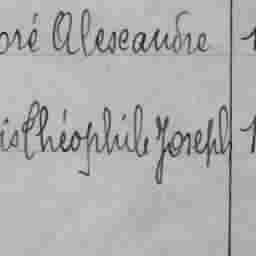 oré Alexandre 1
is Théophile Joseph 1